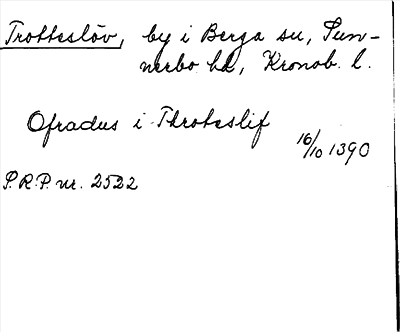 Trotteslöv, by i Berga sn, Sun-
nerbo hd, Kronob. l.
Ofradus i Throteslif
16/10 1390
S.R.P. nr. 2522